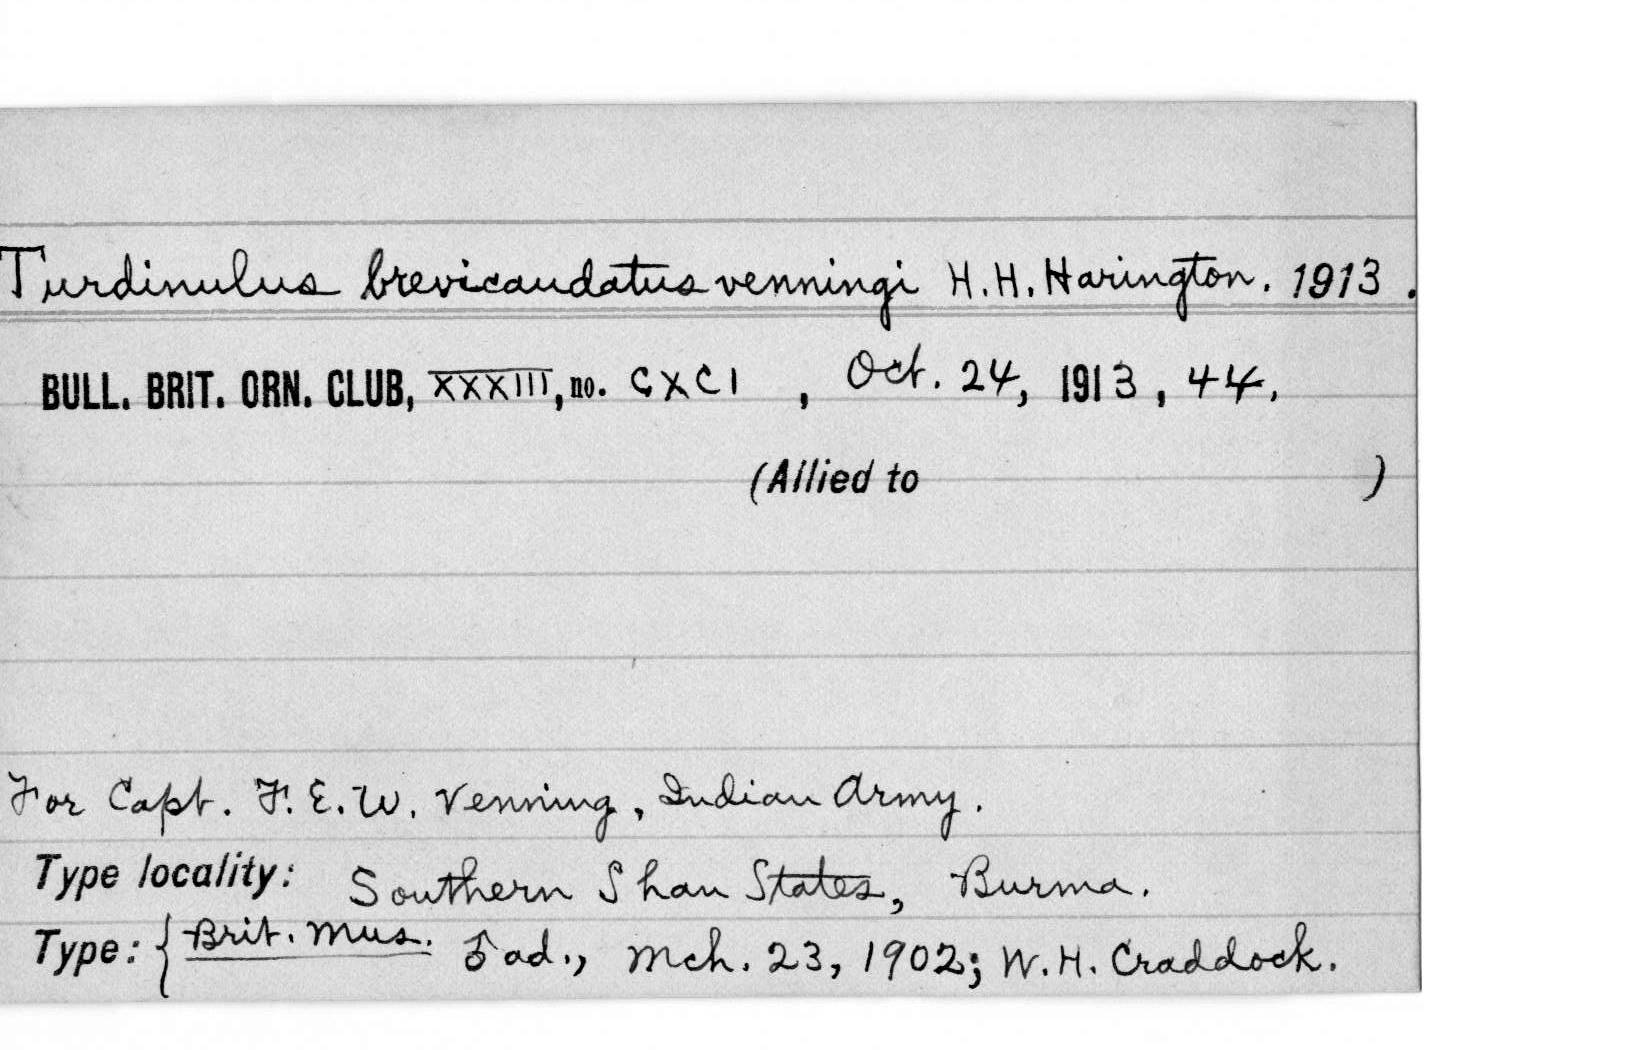 Turdinulus brevicaudatus venningi H.H. Harington. 1913.
BULL. BRIT. ORN. CLUB, XXXIII, no. CXCI, Oct. 24, 1913, 44.
(Allied to )
For Capt. F. E. W. Venning, Indian Army.
Type locality: Southern Shan States, Burma.
Type: { Brit. Mus. ad., Mch. 23, 1902; W. H. Craddock.